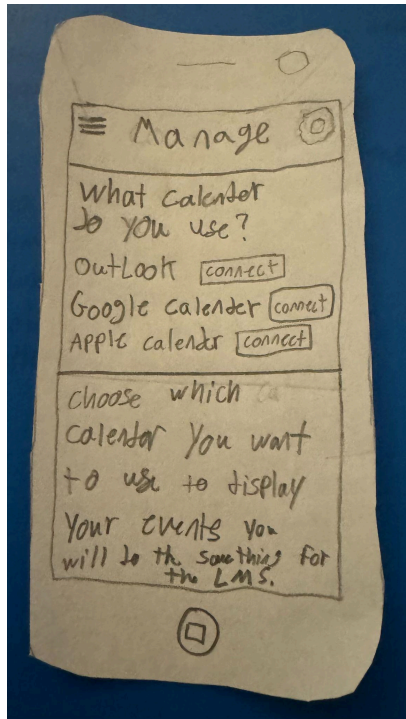 Manage
What calender
do you use?
Outlook connect
Google calender connect
Apple calendr connect
choose which
calendar you want
to use to display
your events you
will do th somthing for
the LMS.